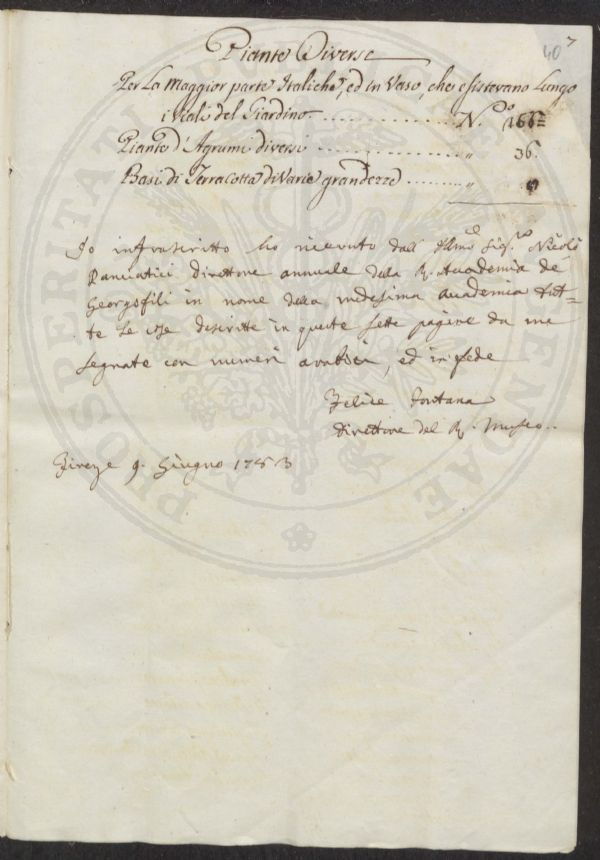 40 7
Piante Diverse
Per La Maggior parte Italiche, ed in Vaso, che esistevano Lungo
i Viali del Giardino. . . . . . . . . . . . . . . N.o 166=
Piante d'Agrumi diversi . . . . . . . . . . . . . . „ 36.
Basi di Terracotta di Varie grandezze . . . . . . . „
Io infrascritto ho ricevuto dall' Illmo Sig.re Nicolò
Panciatici Direttore annuale della R. Accademia de
Georgofili in nome della medesima Accademia tut=
te le cose descritte in queste sette pagine da me
segnate con numeri arabici, ed in fede
Felice Fontana
Direttore del R. Museo..
Firenze 9. Giugno 1783
PROSPERITATI PUBLICAE AUGENDAE